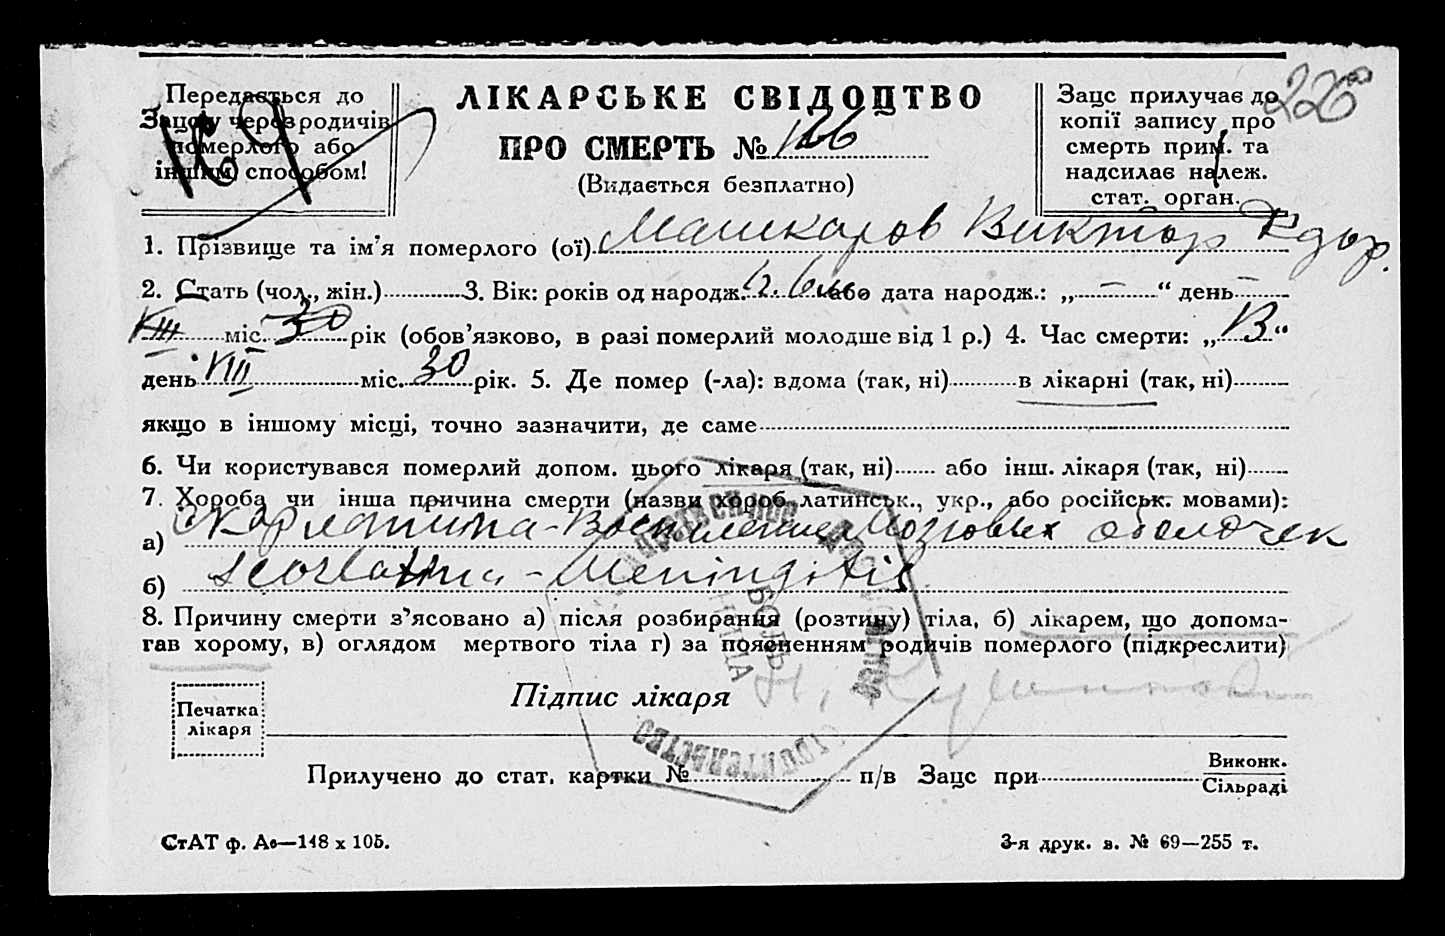 226
Передається до
Загсу через родичів
померлого або
іншим способом!
ЛІКАРСЬКЕ СВІДОЦТВО
ПРО СМЕРТЬ № 166
(Видається безплатно)
Загс прилучає до
копії запису про
смерть прим. та
надсилає належ.
стат. орган.
1. Прізвище та ім'я померлого (ої) Машкаров Виктор
2. Стать (чол., жін.) 3. Вік: років од народж. або дата народж.: „ — “ день —
VIII міс. 30 рік (обов'язково, в разі померлий молодше від 1 р.) 4. Час смерти: „ “
день VIII міс. 30 рік. 5. Де помер (-ла): вдома (так, ні) в лікарні (так, ні)
якщо в іншому місці, точно зазначити, де саме
6. Чи користувався померлий допом. цього лікаря (так, ні) або інш. лікаря (так, ні)
7. Хороба чи інша причина смерти (назви хороб латинськ., укр., або російськ. мовами):
а) Скарлатина - Воспаление Мозговых оболочек
б) Scarlatina - Meningitis
8. Причину смерти з'ясовано а) після розбирання (розтину) тіла, б) лікарем, що допома-
гав хорому, в) оглядом мертвого тіла г) за поясненням родичів померлого (підкреслити)
БОЛЬ
НИЦА
Підпис лікаря
Печатка
лікаря
СТРОИТЕЛЬСТВО
Прилучено до стат. картки № п/в Загс при Виконк.
Сільраді
СтАТ ф. А6—148 х 105.
3-я друк. з. № 69—255 т.